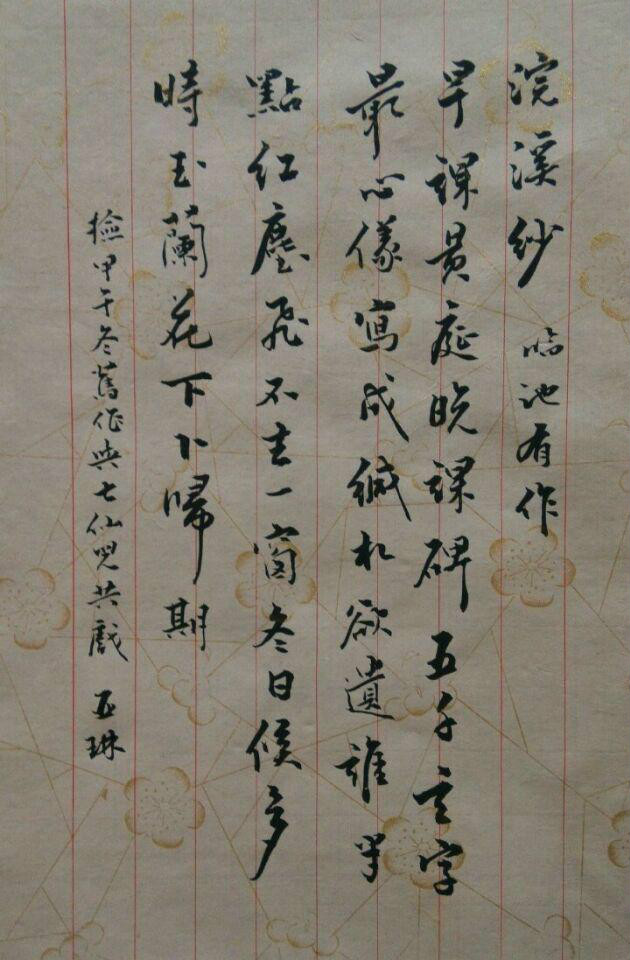 浣溪紗 臨池有作
早課黃庭晚課碑五千言字
最心儀寫成緘札欲遺誰半
點紅塵飛不去一窗冬日候多
時玉蘭花下卜歸期
撿甲午冬舊作與七仙兒共戲 亞琳